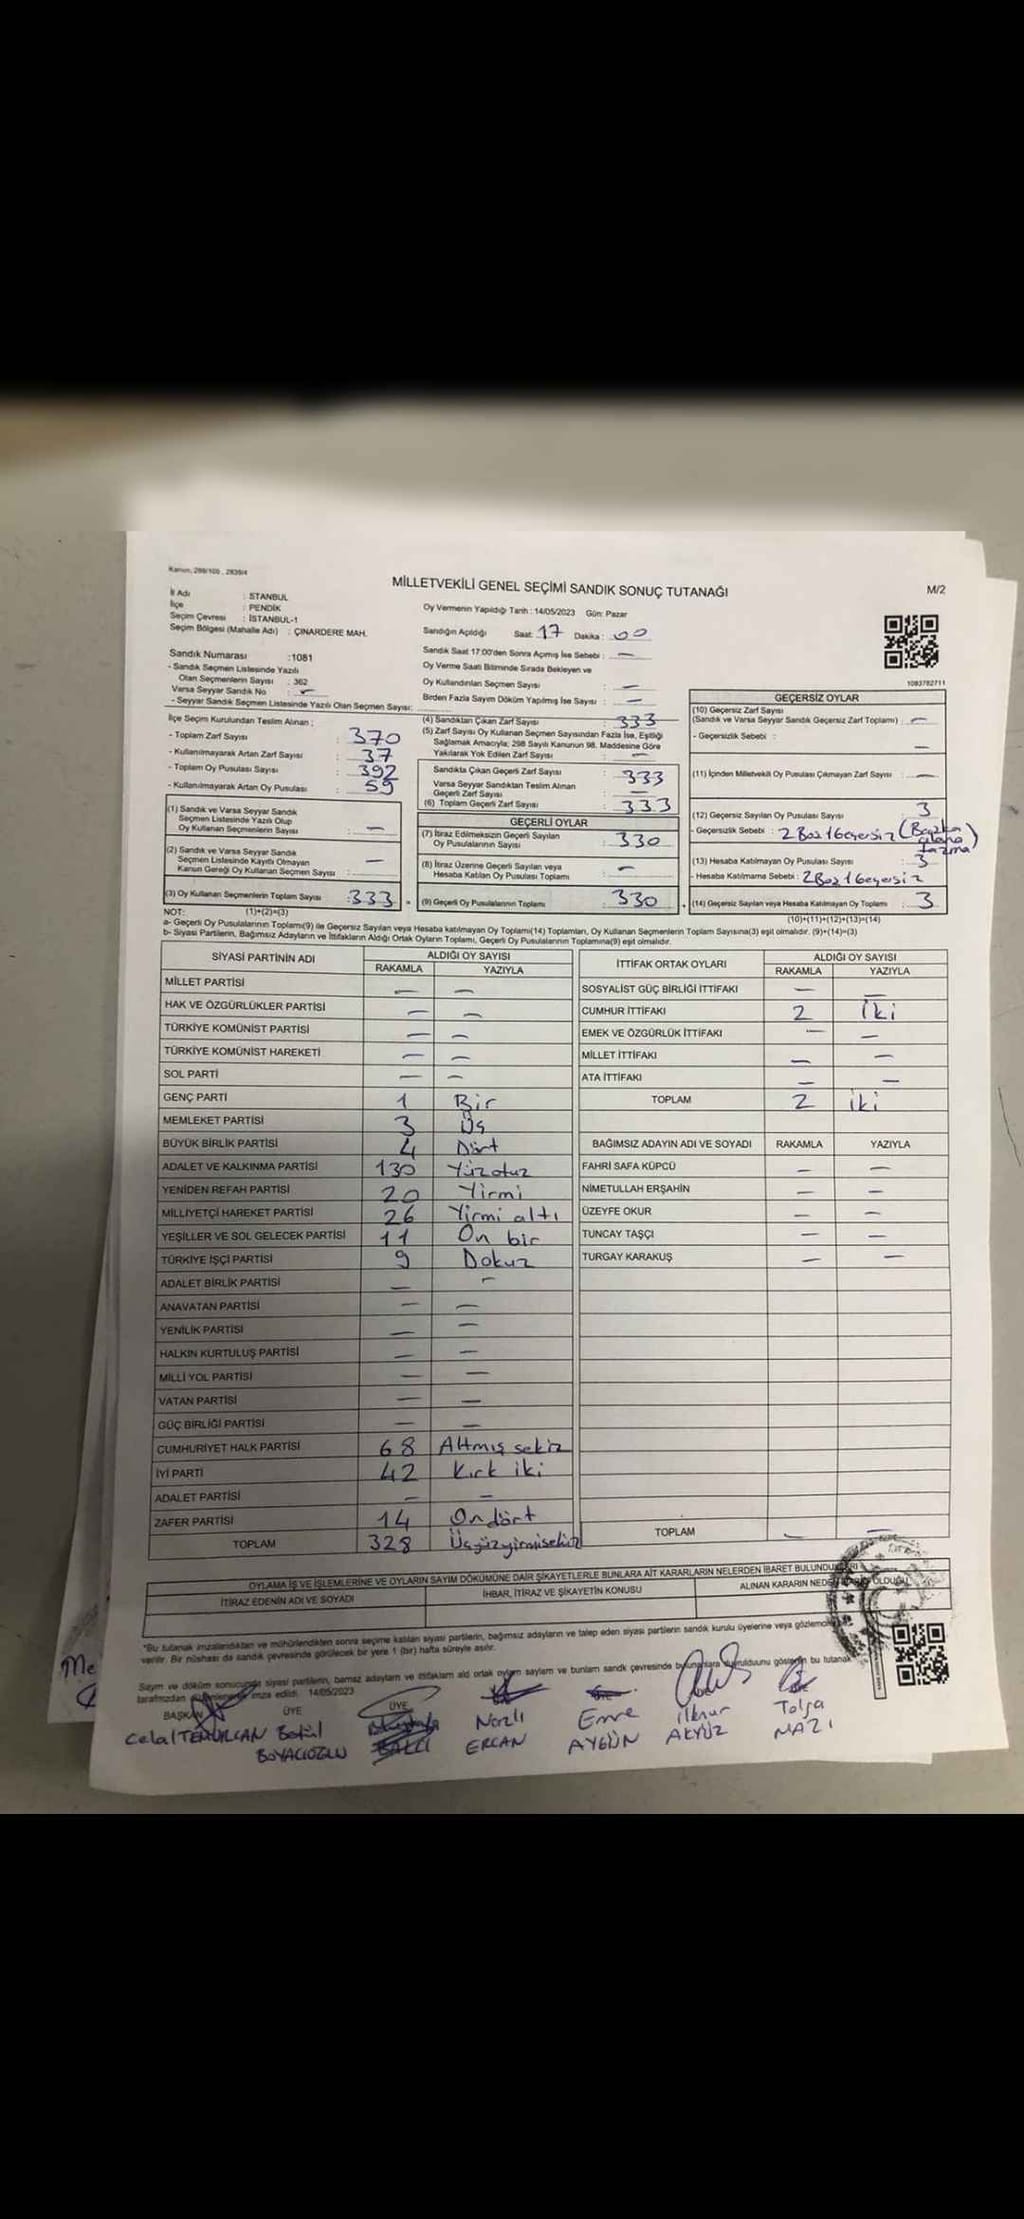 Kanun, 298/105 , 2839/4
MİLLETVEKİLİ GENEL SEÇİMİ SANDIK SONUÇ TUTANAĞI
M/2
İl Adı : STANBUL
İlçe : PENDİK
Seçim Çevresi : İSTANBUL-1
Seçim Bölgesi (Mahalle Adı) : ÇINARDERE MAH.
Oy Vermenin Yapıldığı Tarih : 14/05/2023 Gün: Pazar
Sandığın Açıldığı Saat: 17 Dakika : 00
Sandık Saat 17:00'den Sonra Açılmış İse Sebebi : —
Oy Verme Saati Bitiminde Sırada Bekleyen ve
Oy Kullandırılan Seçmen Sayısı : —
Birden Fazla Sayım Döküm Yapılmış İse Sayısı : —
1093782711
Sandık Numarası :1081
- Sandık Seçmen Listesinde Yazılı
Olan Seçmenlerin Sayısı : 362
Varsa Seyyar Sandık No : —
- Seyyar Sandık Seçmen Listesinde Yazılı Olan Seçmen Sayısı:
İlçe Seçim Kurulundan Teslim Alınan ;
- Toplam Zarf Sayısı : 370
- Kullanılmayarak Artan Zarf Sayısı : 37
- Toplam Oy Pusulası Sayısı : 392
- Kullanılmayarak Artan Oy Pusulası : 59
(1) Sandık ve Varsa Seyyar Sandık
Seçmen Listesinde Yazılı Olup
Oy Kullanan Seçmenlerin Sayısı : —
(2) Sandık ve Varsa Seyyar Sandık
Seçmen Listesinde Kayıtlı Olmayan
Kanun Gereği Oy Kullanan Seçmen Sayısı : —
(3) Oy Kullanan Seçmenlerin Toplam Sayısı :333
(4) Sandıktan Çıkan Zarf Sayısı : 333
(5) Zarf Sayısı Oy Kullanan Seçmen Sayısından Fazla İse, Eşitliği
Sağlamak Amacıyla; 298 Sayılı Kanunun 98. Maddesine Göre
Yakılarak Yok Edilen Zarf Sayısı : —
Sandıkta Çıkan Geçerli Zarf Sayısı : 333
Varsa Seyyar Sandıktan Teslim Alınan
Geçerli Zarf Sayısı : —
(6) Toplam Geçerli Zarf Sayısı : 333
GEÇERLİ OYLAR
(7) İtiraz Edilmeksizin Geçerli Sayılan
Oy Pusulalarının Sayısı : 330
(8) İtiraz Üzerine Geçerli Sayılan veya
Hesaba Katılan Oy Pusulası Toplamı : —
(9) Geçerli Oy Pusulalarının Toplamı : 330
GEÇERSİZ OYLAR
(10) Geçersiz Zarf Sayısı
(Sandık ve Varsa Seyyar Sandık Geçersiz Zarf Toplamı) : —
- Geçersizlik Sebebi : —
(11) İçinden Milletvekili Oy Pusulası Çıkmayan Zarf Sayısı : —
(12) Geçersiz Sayılan Oy Pusulası Sayısı : 3
- Geçersizlik Sebebi : 2Boş 1Geçersiz (Başka alana yazma)
(13) Hesaba Katılmayan Oy Pusulası Sayısı : 3
- Hesaba Katılmama Sebebi : 2Boş 1Geçersiz
(14) Geçersiz Sayılan veya Hesaba Katılmayan Oy Toplamı : 3
NOT: (1)+(2)=(3)
(10)+(11)+(12)+(13)=(14)
a- Geçerli Oy Pusulalarının Toplamı(9) ile Geçersiz Sayılan veya Hesaba katılmayan Oy Toplamı(14) Toplamları, Oy Kullanan Seçmenlerin Toplam Sayısına(3) eşit olmalıdır. (9)+(14)=(3)
b- Siyasi Partilerin, Bağımsız Adayların ve İttifakların Aldığı Ortak Oyların Toplamı, Geçerli Oy Pusulalarının Toplamına(9) eşit olmalıdır.
SİYASİ PARTİNİN ADI ALDIĞI OY SAYISI
RAKAMLA YAZIYLA
MİLLET PARTİSİ — —
HAK VE ÖZGÜRLÜKLER PARTİSİ — —
TÜRKİYE KOMÜNİST PARTİSİ — —
TÜRKİYE KOMÜNİST HAREKETİ — —
SOL PARTİ — —
GENÇ PARTİ 1 Bir
MEMLEKET PARTİSİ 3 Üç
BÜYÜK BİRLİK PARTİSİ 4 Dört
ADALET VE KALKINMA PARTİSİ 130 Yüzotuz
YENİDEN REFAH PARTİSİ 20 Yirmi
MİLLİYETÇİ HAREKET PARTİSİ 26 Yirmi altı
YEŞİLLER VE SOL GELECEK PARTİSİ 11 On bir
TÜRKİYE İŞÇİ PARTİSİ 9 Dokuz
ADALET BİRLİK PARTİSİ — —
ANAVATAN PARTİSİ — —
YENİLİK PARTİSİ — —
HALKIN KURTULUŞ PARTİSİ — —
MİLLİ YOL PARTİSİ — —
VATAN PARTİSİ — —
GÜÇ BİRLİĞİ PARTİSİ — —
CUMHURİYET HALK PARTİSİ 68 Altmış sekiz
İYİ PARTİ 42 Kırk iki
ADALET PARTİSİ — —
ZAFER PARTİSİ 14 On dört
TOPLAM 328 Üçyüzyirmisekiz
İTTİFAK ORTAK OYLARI ALDIĞI OY SAYISI
RAKAMLA YAZIYLA
SOSYALİST GÜÇ BİRLİĞİ İTTİFAKI — —
CUMHUR İTTİFAKI 2 İki
EMEK VE ÖZGÜRLÜK İTTİFAKI — —
MİLLET İTTİFAKI — —
ATA İTTİFAKI — —
TOPLAM 2 iki
BAĞIMSIZ ADAYIN ADI VE SOYADI RAKAMLA YAZIYLA
FAHRİ SAFA KÜPCÜ — —
NİMETULLAH ERŞAHİN — —
ÜZEYFE OKUR — —
TUNCAY TAŞÇI — —
TURGAY KARAKUŞ — —
TOPLAM — —
OYLAMA İŞ VE İŞLEMLERİNE VE OYLARIN SAYIM DÖKÜMÜNE DAİR ŞİKAYETLERLE BUNLARA AİT KARARLARIN NELERDEN İBARET BULUNDUKLARI
İTİRAZ EDENİN ADI VE SOYADI İHBAR, İTİRAZ VE ŞİKAYETİN KONUSU ALINAN KARARIN OLDUĞU
*Bu tutanak imzalandıktan ve mühürlendikten sonra seçime katılan siyasi partilerin, bağımsız adayların ve talep eden siyasi partilerin sandık kurulu üyelerine veya gözlemcilerine
verilir. Bir nüshası da sandık çevresinde görülecek bir yere 1 (bir) hafta süreyle asılır.
14/05/2023
BAŞKAN ÜYE ÜYE
Celal TEMURCAN
Betül BOYACIOĞLU
BALCI
Nazlı ERCAN
Emre AYGÜN
ilknur AKYÜZ
Tolga MAZI
Me